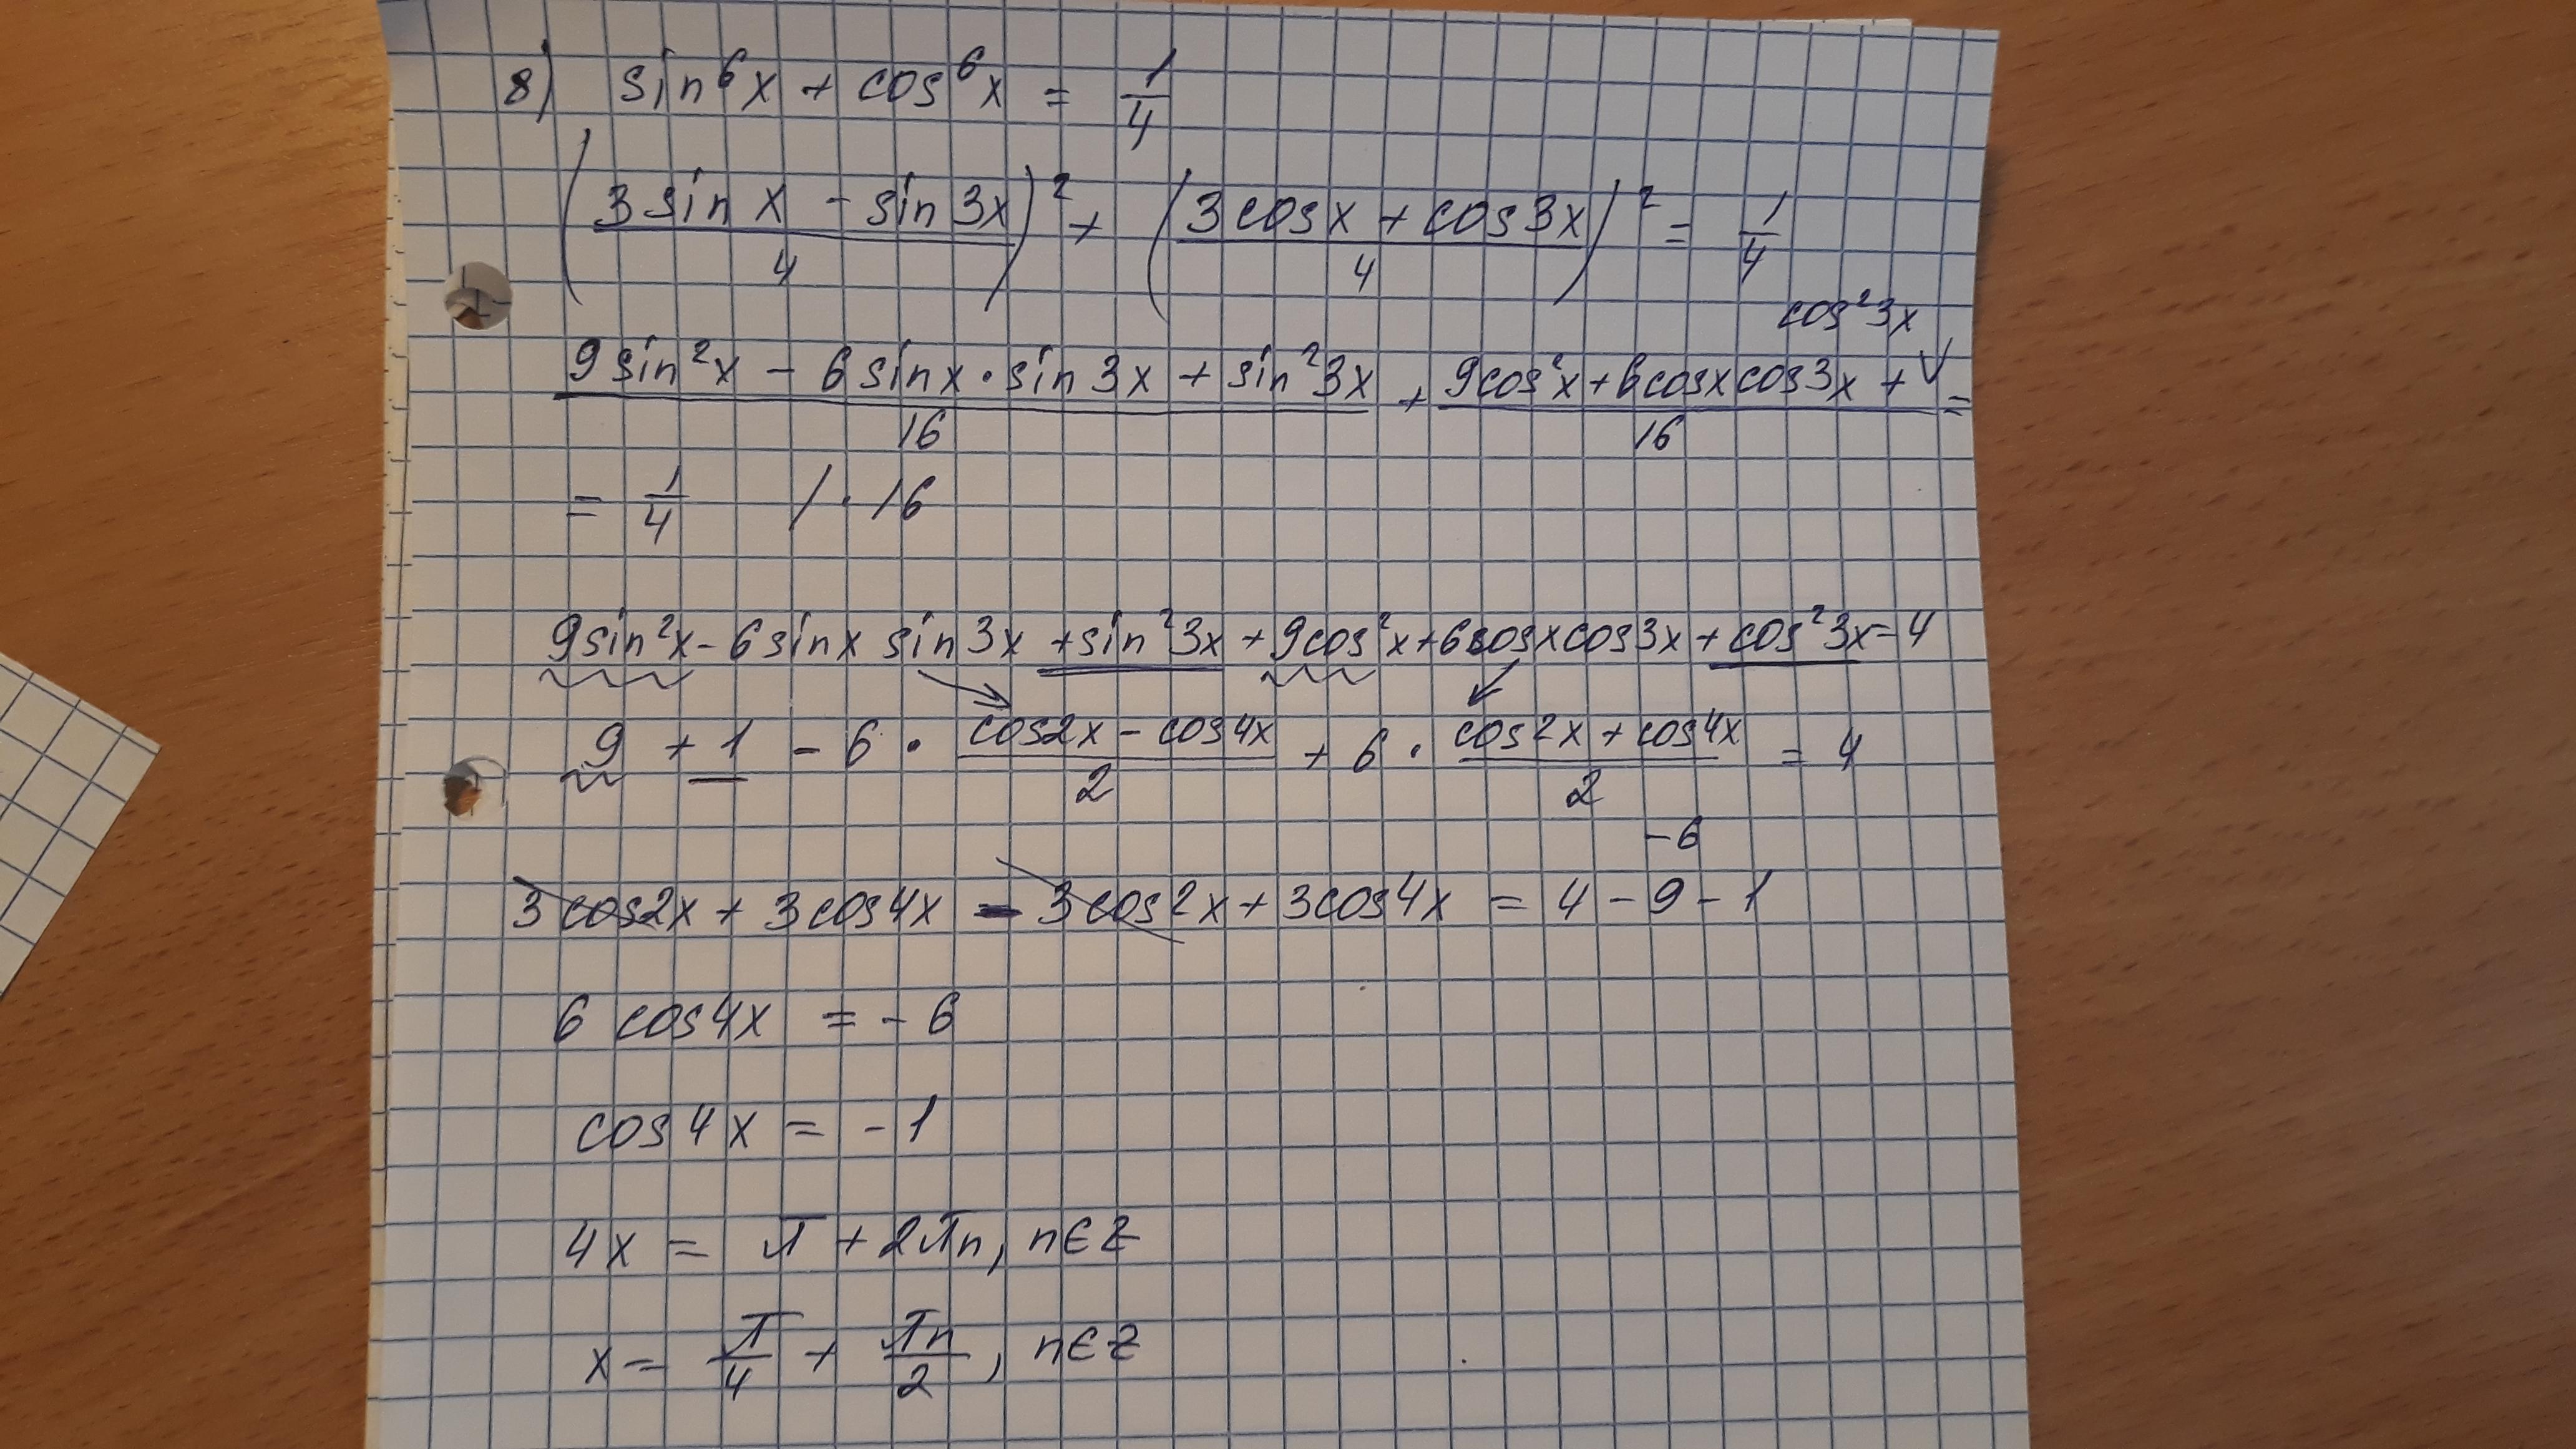 8) sin⁶x + cos⁶x = 1/4
((3 sin x - sin 3x)/4)² + ((3 cos x + cos 3x)/4)² = 1/4
(9 sin²x - 6 sin x · sin 3x + sin²3x)/16 + (9 cos²x + 6 cos x cos 3x + cos²3x)/16 =
= 1/4 / · 16
9 sin²x - 6 sin x sin 3x + sin²3x + 9 cos²x + 6 cos x cos 3x + cos²3x = 4
9 + 1 - 6 · (cos 2x - cos 4x)/2 + 6 · (cos 2x + cos 4x)/2 = 4
-6
3 cos 2x + 3 cos 4x - 3 cos 2x + 3 cos 4x = 4 - 9 - 1
6 cos 4x = - 6
cos 4x = - 1
4x = π + 2πn, n ∈ Z
x = π/4 + πn/2, n ∈ Z